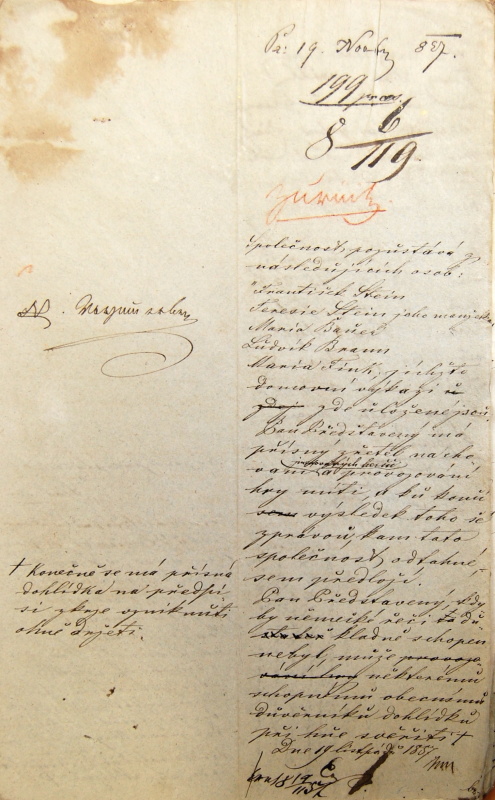 Pr: 19. Novb 857.
199 praes.
8 6/119
zurück
Společnost pozůstává z
následujících osob:
František Stein
Terezie Stein jeho manželka
Maria Bauer
Ludvík Braun
Maria Fink, jichžto
domovní výkazi
zde uložené jsou.
Pan Představený má
přísný zřetel na cho
vaní a provozování
hry míti, a ku konci
výsledek toho se
zprávou, kam tato
společnost odtáhne,
sem předloží.
Pan Představený, kdy
by německé řeči
kladně schopen
nebyl, může
některému
schopnému obecnímu
důvěrníku dohlídku
při hře svěřiti +
Dne 19 listopadu 1857
+ Konečně se má přísná
dohlídka na předpi
si skrze vyniknutí
ohně držeti.